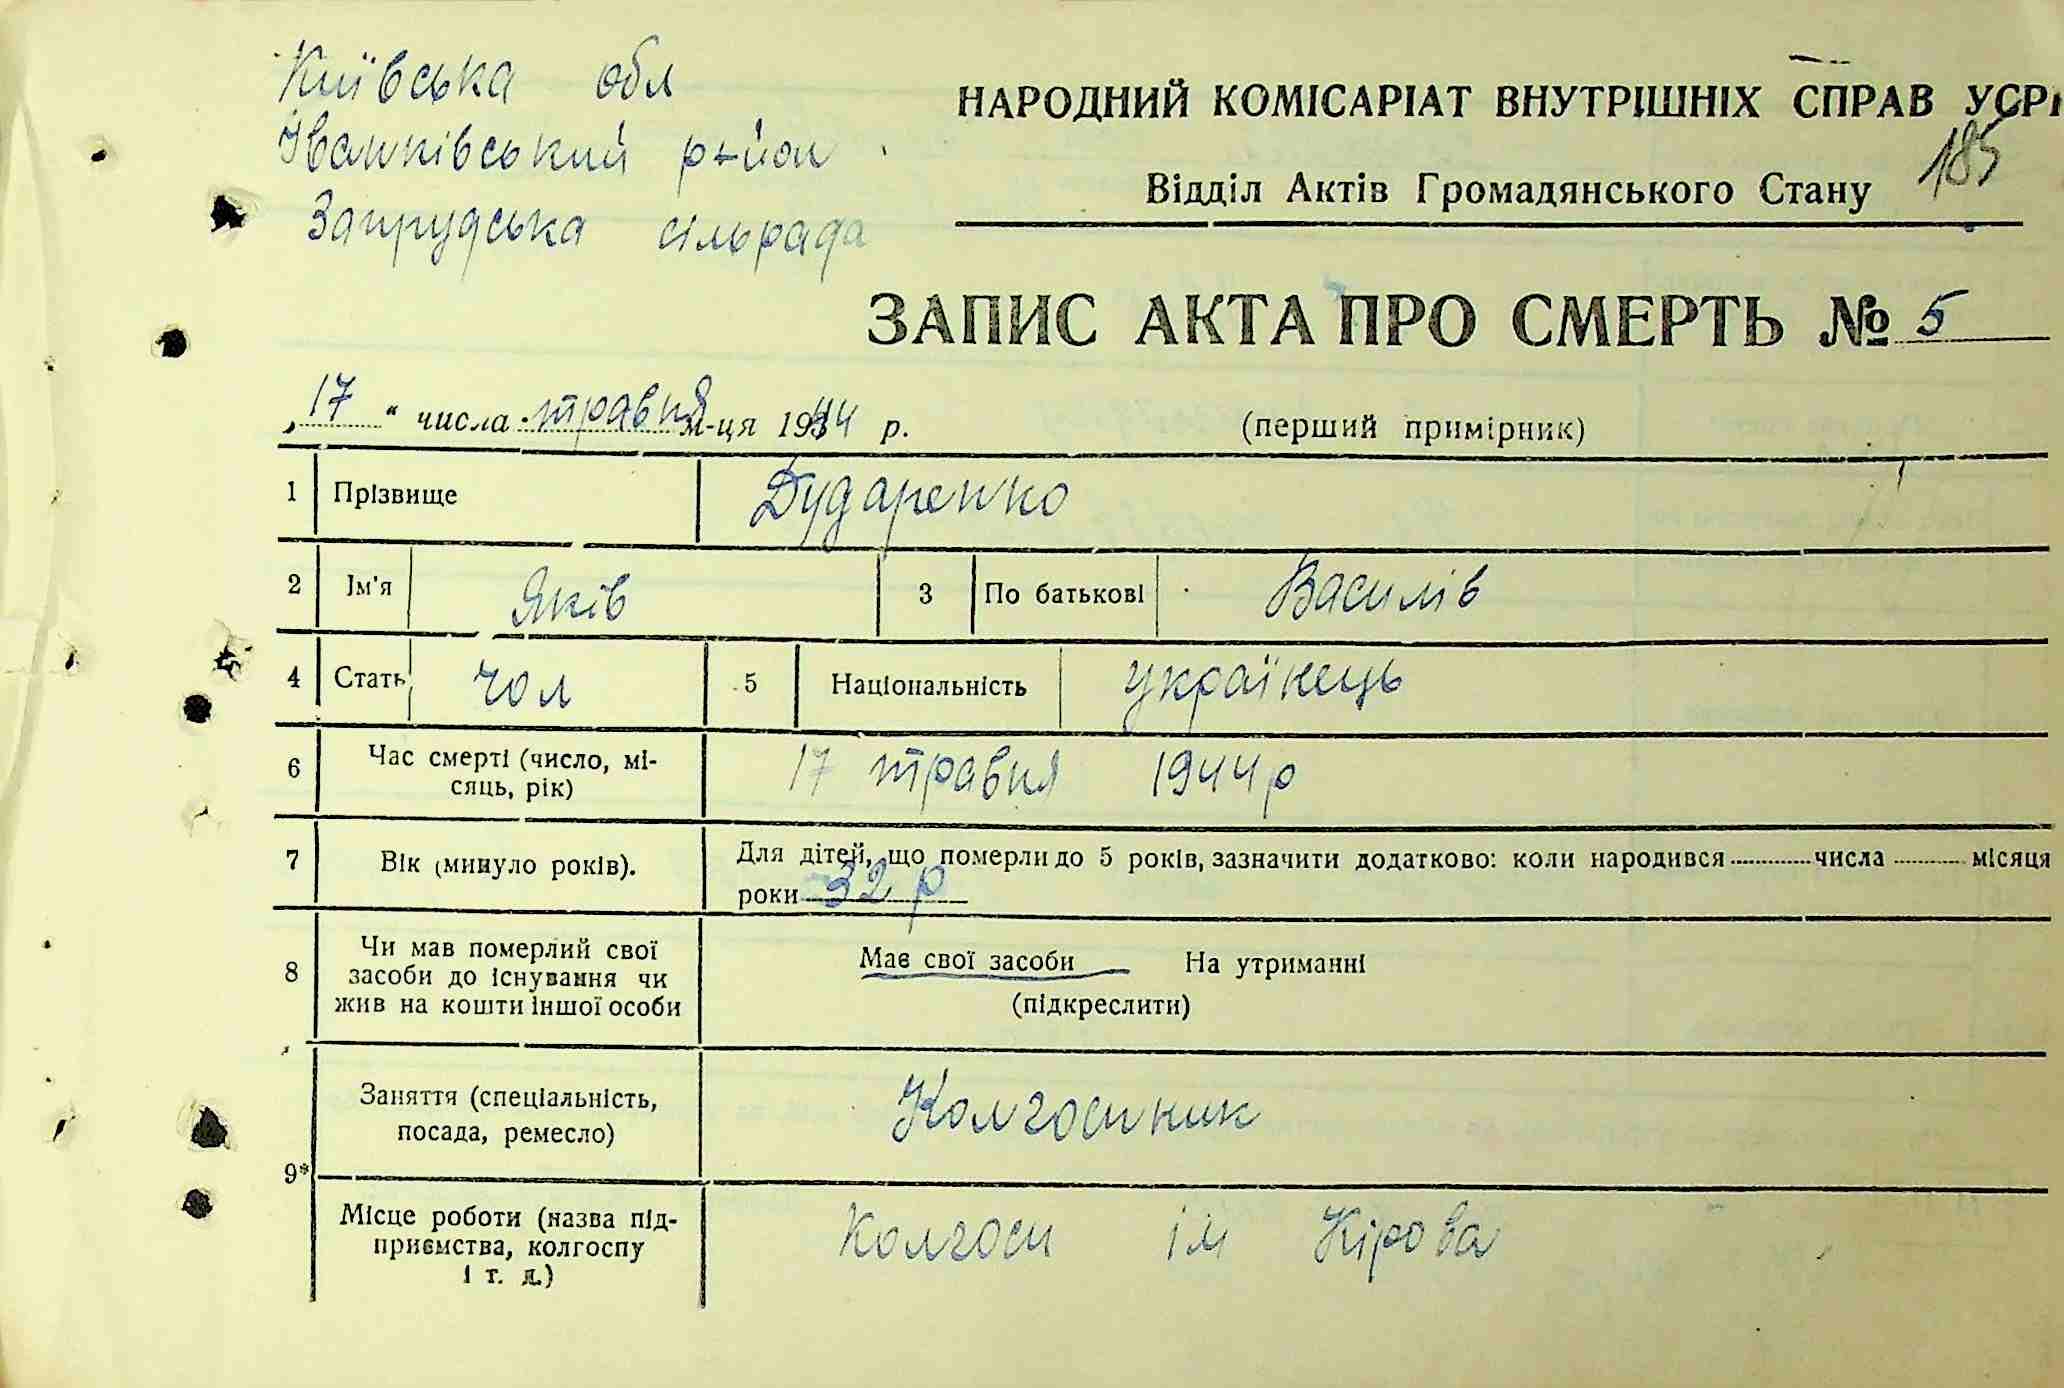 Київська обл
Іванківський район
Запрудська сільрада
НАРОДНИЙ КОМІСАРІАТ ВНУТРІШНІХ СПРАВ УСРР
185
Відділ Актів Громадянського Стану
ЗАПИС АКТА ПРО СМЕРТЬ № 5
„17“ числа травня м-ця 1944 р. (перший примірник)
1 Прізвище Дударенко
2 Ім'я Яків 3 По батькові Василів
4 Стать чол 5 Національність українець
6 Час смерті (число, мі-
сяць, рік) 17 травня 1944 р
7 Вік (минуло років). Для дітей, що померли до 5 років, зазначити додатково: коли народився числа місяця
роки 32 р
8 Чи мав померлий свої
засоби до існування чи
жив на кошти іншої особи
Має свої засоби На утриманні
(підкреслити)
9*
Заняття (спеціальність,
посада, ремесло) Колгоспник
Місце роботи (назва під-
приємства, колгоспу
і т. д.) Колгосп ім Кірова